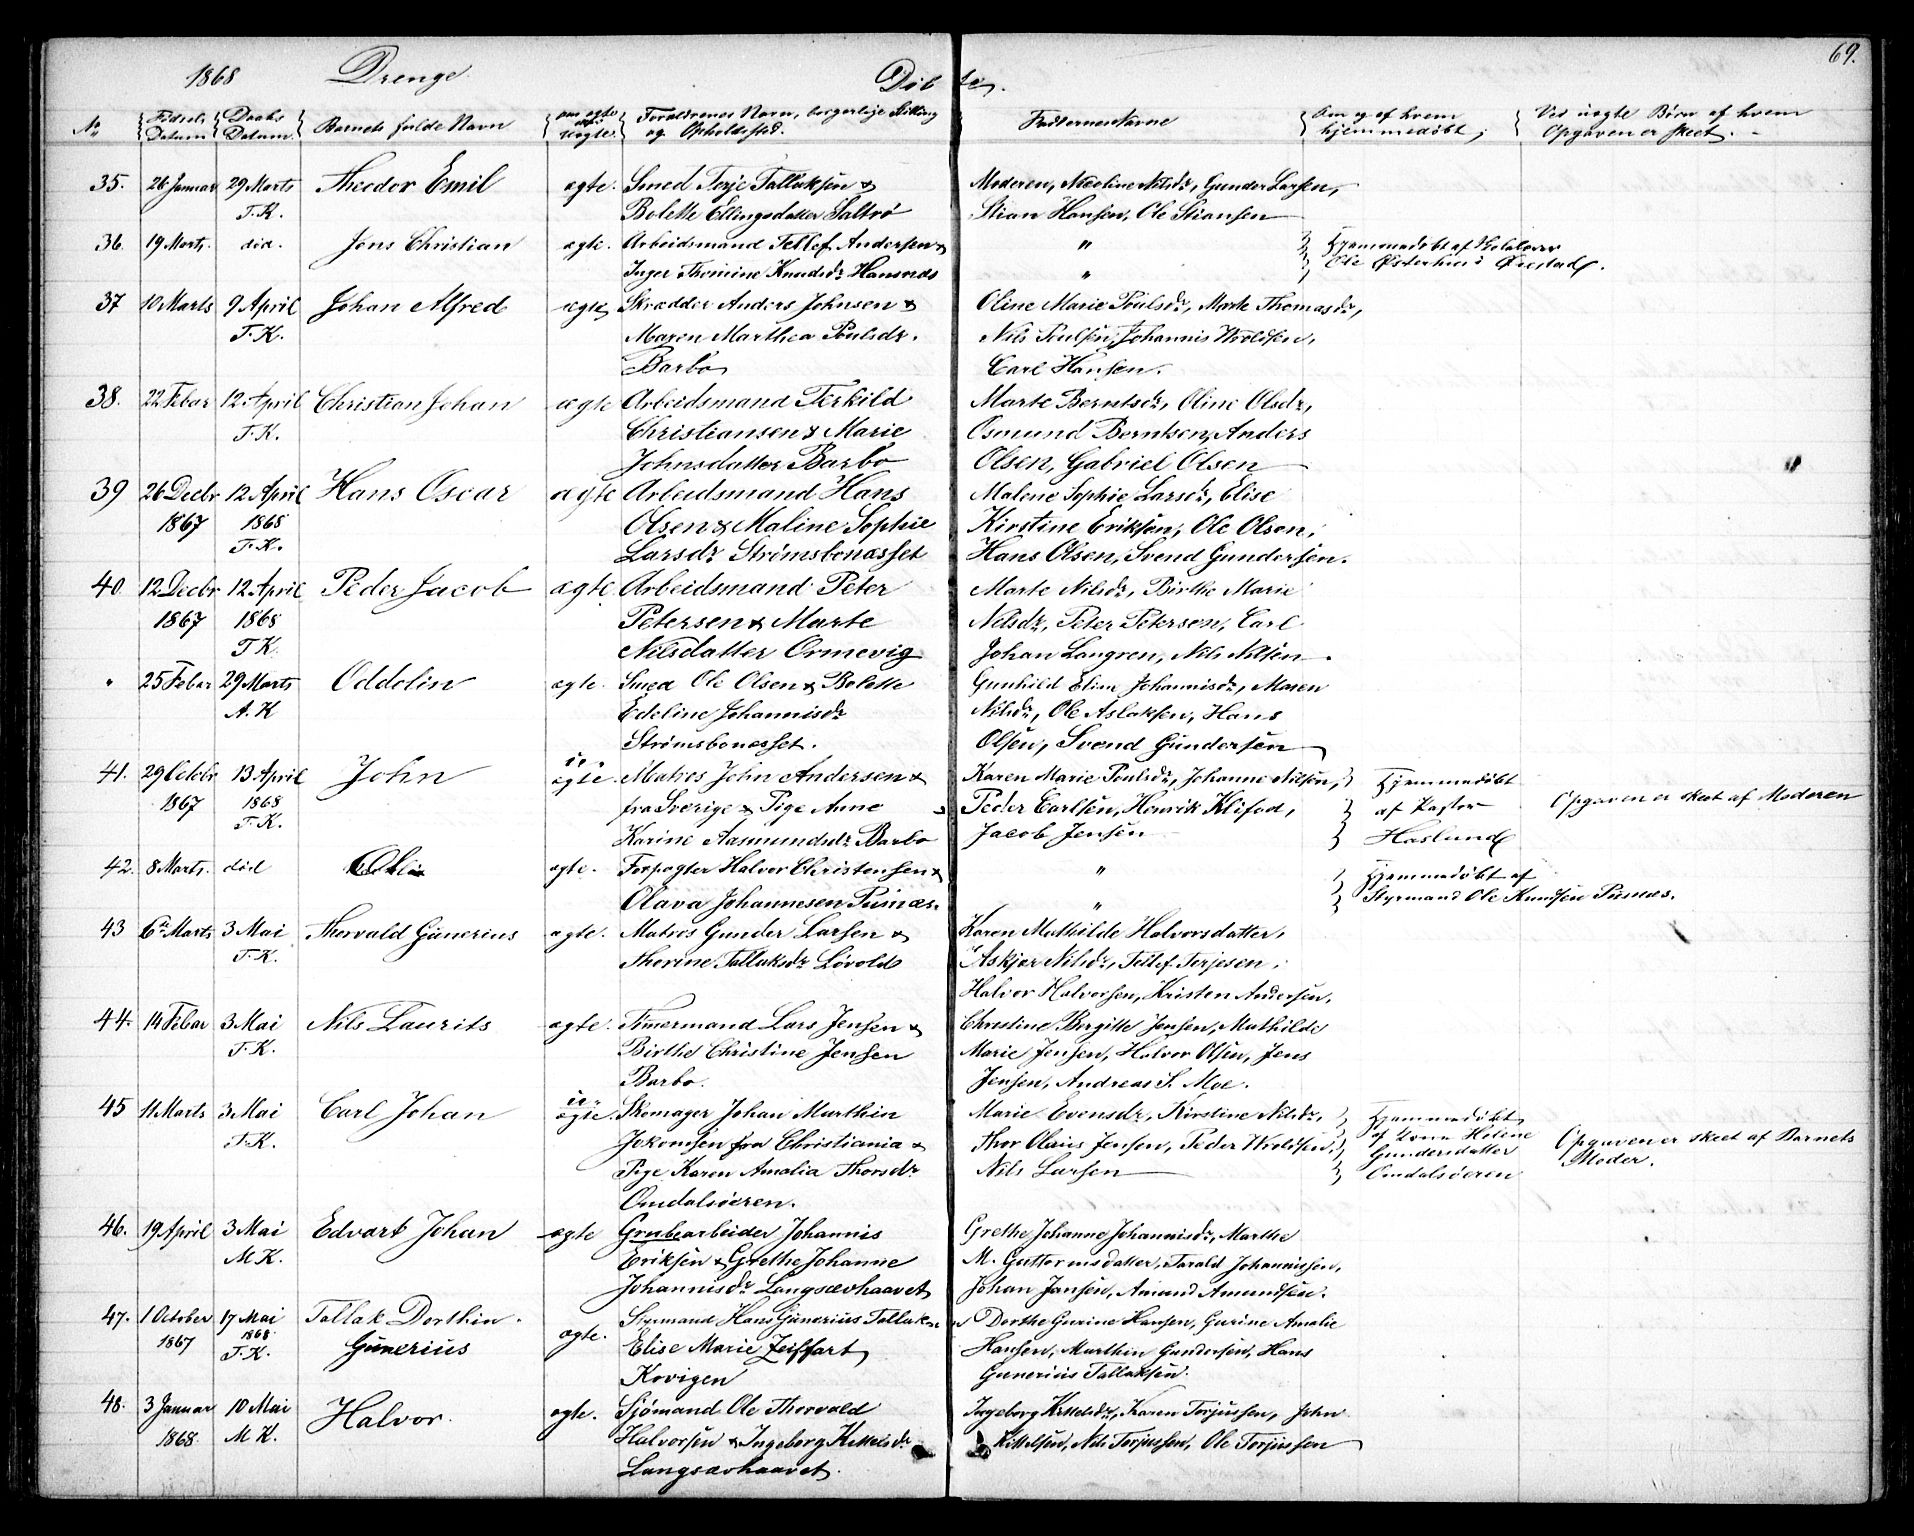 69.
1868 Drenge Døbte.
No Fødsels Datum Daabs Datum Barnets fulde Navn om ægte eller uægte Forældrenes Navn, borgerlige Stilling og Opholdssted. Faddernes Navne Om og af hvem hjemmedøbt; Ved uægte Børn af hvem Opgaven er skeet.
35. 26 Januar 29 Marts Theodor Emil ægte. Smed Terje Tallaksen & Moderen, Nicoline Nilsdr, Gunder Larsen,
T.K. Bolette Ellingsdatter Saltrø Stian Hansen, Ole Stiansen
36. 19 Marts. død. Jens Christian ægte. Arbeidsmand Tellef Andersen & " Hjemmedøbt af Skolelærer
Inger Thomine Knudsdr Hansnæs " Ole Østerhus Ørestad.
37 10 Marts 9 April Johan Alfred ægte Skrædder Anders Johnsen & Oline Marie Poulsdr, Marte Thomasdr,
T.K. Maren Marthea Poulsdr. Nils Poulsen, Johannis Wroldsen,
Barbo Carl Hansen.
38. 22 Febar 12 April Christian Johan ægte Arbeidsmand Terkild Marte Berntsdr, Oline Olsdr,
T.K. Christiansen & Marie Osmund Berntsen, Anders
Johnsdatter Barbo Olsen, Gabriel Olsen
39 26 Decbr 12 April Hans Oscar ægte Arbeidsmand Hans Malene Sophie Larsdr, Elise
1867 1868 Olsen & Maline Sophie Kirstine Eriksen, Ole Olsen,
T.K. Larsdr Strømsbonæsset Hans Olsen, Svend Gundersen.
40 12 Decbr 12 April Peder Jacob ægte Arbeidsmand Peter Marte Nilsdr, Birthe Marie
1867 1868 Petersen & Marte Nilsdr, Peter Petersen, Carl
T.K. Nilsdatter Ormevig Johan Langren, Nils Nilsen.
" 25 Febar 29 Marts Oddolin ægte. Smed Ole Olsen & Bolette Gunhild Eline Johannisdr, Maren
A.K Edeline Johannisdr Nilsdr, Ole Aslaksen, Hans
Strømsbonæsset. Olsen, Svend Gundersen
41. 29 Octobr 13 April John uægte. Matros John Andersen & Karen Marie Poulsdr, Johanne Nilsen, Hjemmedøbt
1867 1868 fra Sverige & Pige Anne Peder Carlsen, Henrik Klifod, af Pastor Opgaven er skeet af Moderen
T.K. Karine Aasmundsdr Barbo Jacob Jensen Haslund
42. 8 Marts. død ægte. Forpagter Halvor Christensen & " Hjemmedøbt af
Olava Johannesen Pusnæs. " Styrmand Ole Knudsen Pusnæs.
43 6te Marts 3 Mai Thorvald Gunerius ægte. Matros Gunder Larsen & Karen Mathilde Halvorsdatter,
T.K. Thorine Tallaksdr Løvold Askjær Nilsdr, Tellef Terjesen,
Halvor Halvorsen, Kristen Andersen,
44. 14 Febar 3 Mai Nils Laurits ægte. Timermand Lars Jensen & Christine Birgitte Jensen, Mathilde
T.K. Birthe Christine Jensen Marie Jensen, Halvor Olsen, Jens
Barbo. Jensen, Andreas S. Moe.
45 11 Marts 3 Mai Carl Johan uægte. Skomager Johan Marthin Marie Evensdr, Kirstine Nilsdr, Hjemmedøbt
T.K. Jokomsen fra Christiania & Thor Olaus Jensen, Peder Wroldsen, af Kone Helene Opgaven er skeet af Barnets
Pige Karen Amalia Thorsdr Nils Larsen Gundersdatter Moder.
Omdalsøeren. Omdalsøeren
46. 19 April 3 Mai Edvart Johan ægte Grubearbeider Johannis Grethe Johanne Johannisdr, Marthe
M.K. Eriksen & Grethe Johanne M. Guttormsdatter, Tarald Johannissen,
Johannisdr Langsævhaavet Johan Jansen, Amund Amundsen.
47. 1 October 17 Mai Tallak Dorthin ægte. Styrmand Hans Gunerius Tallaksen Dorthe Gurine Hansen, Gurine Amalie
1867 1868 T.K. Gunerius Elise Marie Zeiffart Hansen, Marthin Gundersen, Hans
Kovigen Gunerius Tallaksen.
48. 3 Januar 10 Mai Halvor. ægte. Sjømand Ole Thorvald Ingeborg Kittelsdr, Karen Torjussen, John
1868 M K. Halvorsen & Ingeborg Kittelsdr Kittelsen, Nils Torjussen, Ole Torjussen
Langsævhaavet.